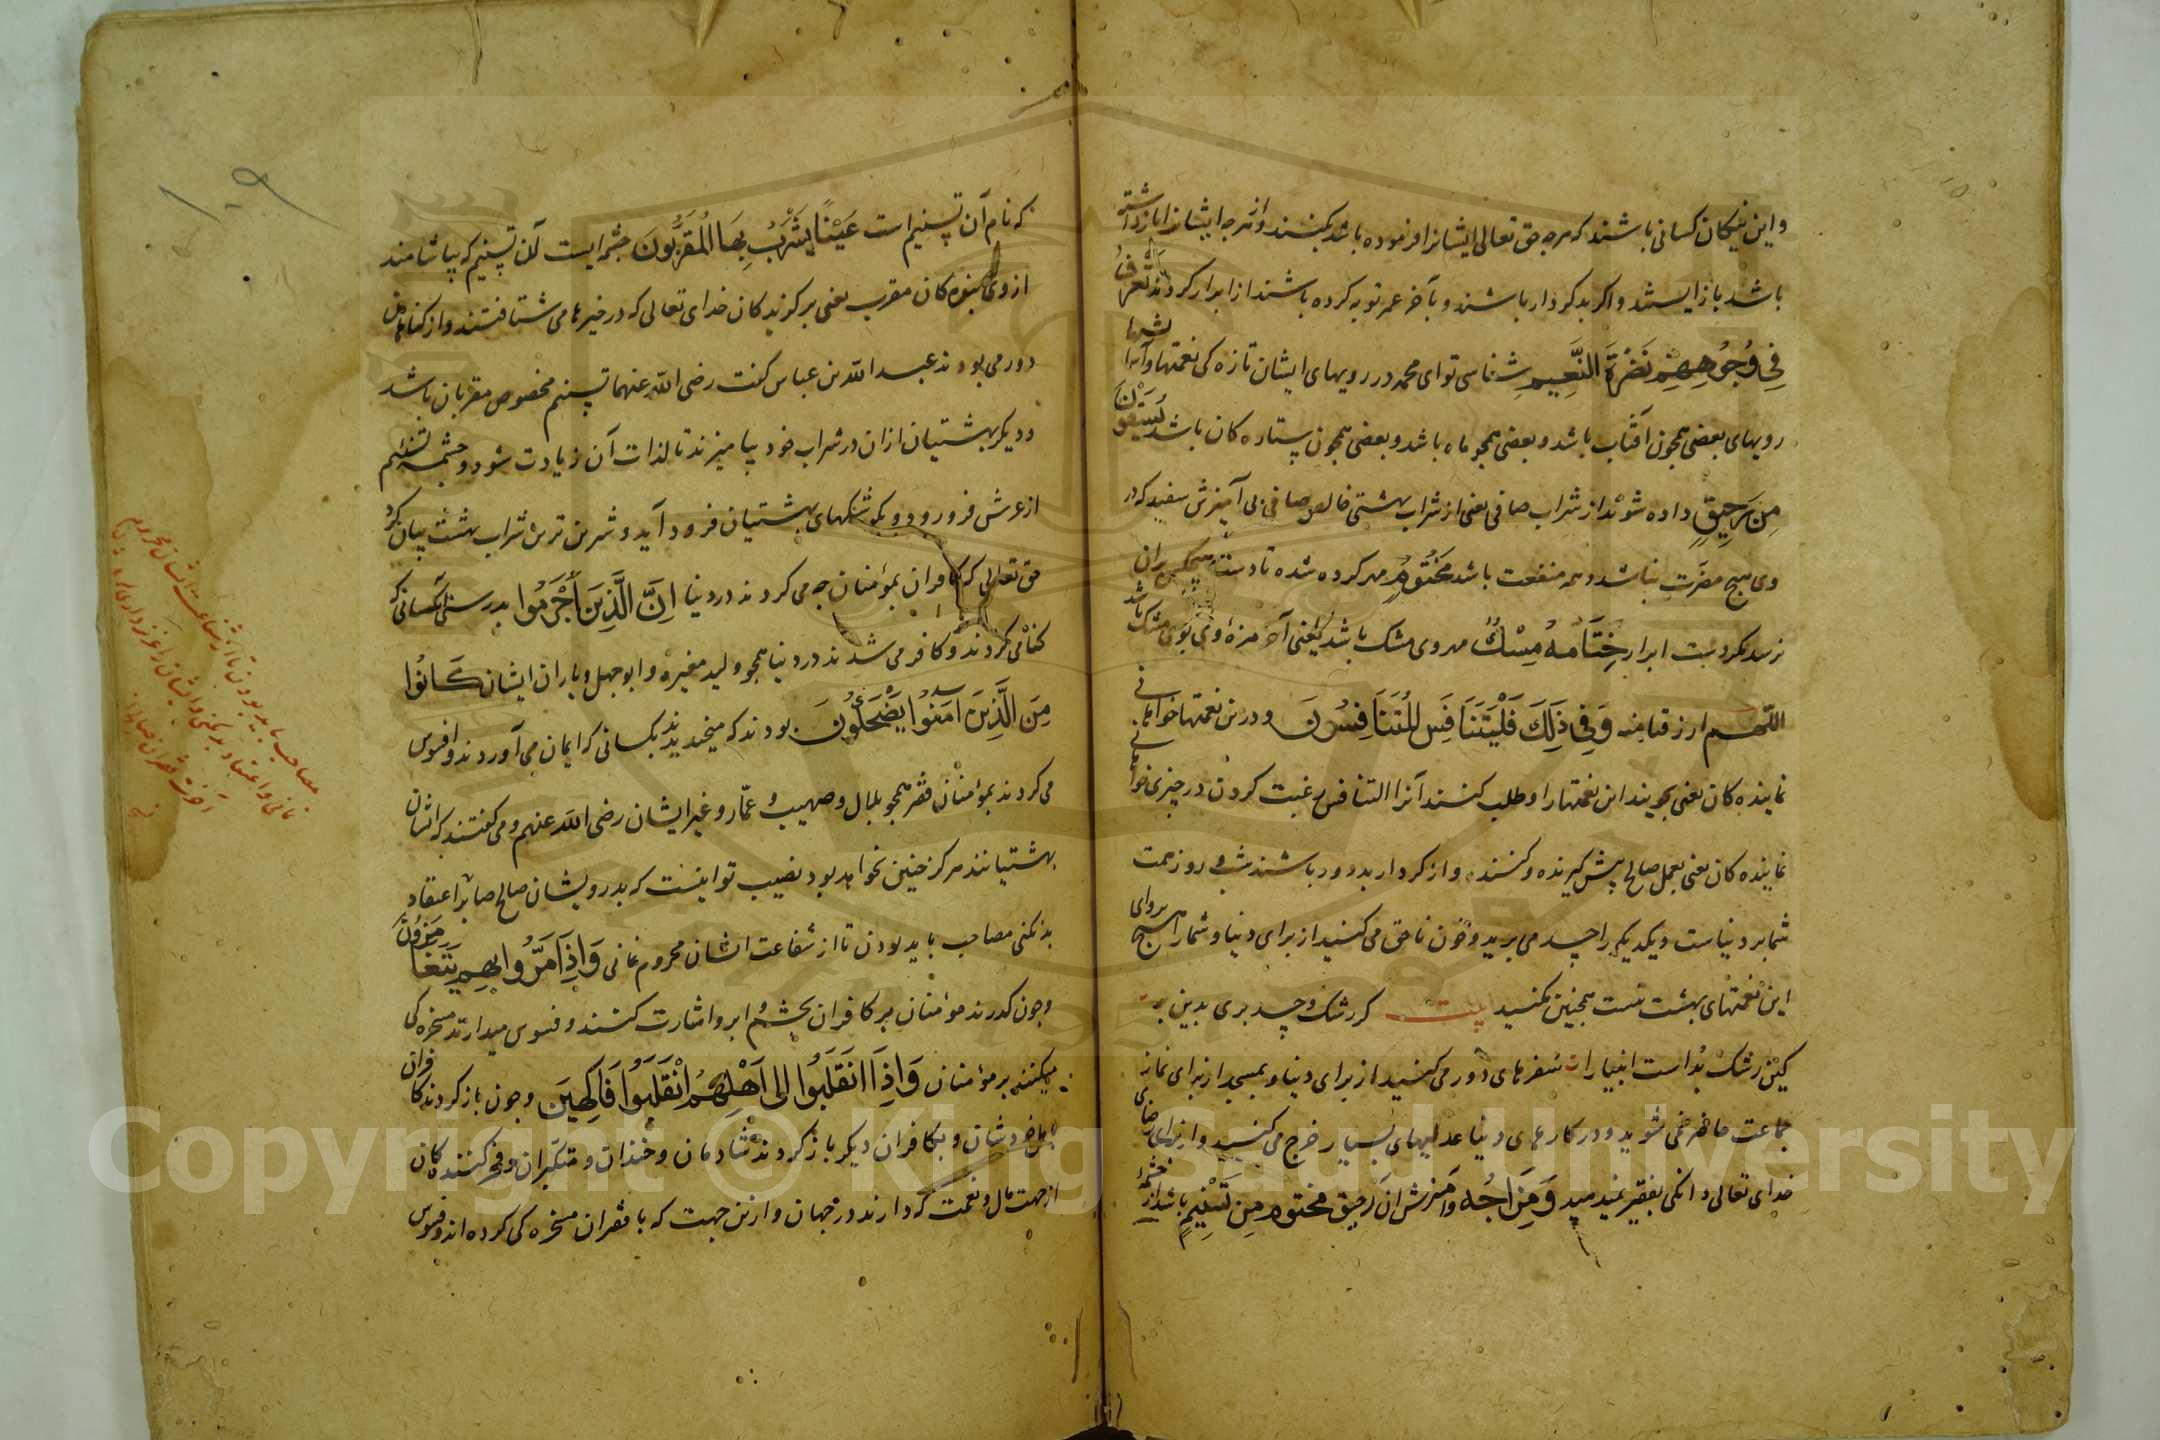 و این نیکان کسانی باشند که هرچه حق تعالی ایشانرا فرموده باشد بکنند و از هرچه ایشانرا باز داشته
باشد باز ایستند و اکر بدکردار باشند و بآخر عمر توبه کرده باشند از ابرار کردند تَعْرِفُ
فِي وُجُوهِهِمْ نَضْرَةَ النَّعِيمِ شناسی تو ای محمد در رویهای ایشان تازه کی نعمتها و آسایشها
رویهای بعضی همچون آفتاب باشد و بعضی همچو ماه باشد و بعضی همچون ستاره کان باشد يُسْقَوْنَ
مِن رَّحِيقٍ داده شوند از شراب صافی یعنی از شراب بهشتی خالص صافی بی آمیزش سفید که در
وی هیچ مضرت نباشد و همه منفعت باشد مَخْتُومٍ مهر کرده شده تا دست هیچکس بران
نرسد مکر دست ابرار خِتَامُهُ مِسْكٌ مهر وی مشک باشد یعنی آخر مزهٔ وی بوی مشک باشد
اللّهم ارزقنا منه وَفِي ذَلِكَ فَلْيَتَنَافَسِ الْمُتَنَافِسُونَ و درین نعمتها خواهانی
نماینده کان یعنی بجویند این نعمتها را و طلب کنند آنرا التنافس رغبت کردن در چیزی خواهانی
نماینده کان یعنی بعمل صالح پیش کیرنده و کنند و از کردار بد دور باشند شب و روز همت
شما بر دنیاست و یکدیکر را حسد می برید و خون ناحق می کنید از برای دنیا و شما را هیچ پروای
این نعمتهای بهشت نیست همچنین مکنید بیت کر رشک و حسد بری بدین بر
کین رشک بُداست انبیا را سفرهای دور می کنید از برای دنیا و بمسجد از برای نماز
جماعت حاضر نمی شوید و در کارهای دنیا عدلیهای بسیار خرج می کنید و از برای رضای
خدای تعالی دانکی بفقیر نمیدهید وَمِزَاجُهُ و آمیزش آن رحیق مختوم مِن تَسْنِيمٍ باشد از چشمهٔ
که نام آن تسنیم است عَيْنًا يَشْرَبُ بِهَا الْمُقَرَّبُونَ چشمه ایست آن تسنیم که بیاشامند
از وی بنده کان مقرب یعنی برکزیدکان خدای تعالی که در خیرها می شتافتند و از کناهان
دور می بودند عبد الله بن عباس کفت رضی الله عنهما تسنیم مخصوص مقربان باشد
و دیکر بهشتیان ازان در شراب خود بیامیزند تا لذات آن زیادت شود و چشمه تسنیم
از عرش فرو رود و بکوشکهای بهشتیان فرود آید و شرین ترین شراب بهشت بیان کرد
حق تعالی که کافران بمؤمنان چه می کردند در دنیا اِنَّ الَّذِينَ أَجْرَمُوا بدرستی آنکسانی که
کناه می کردند و کافر می شدند در دنیا همچو ولید مغیره و ابوجهل و یاران ایشان كَانُوا
مِنَ الَّذِينَ امَنُوا يَضْحَكُونَ بودند که میخندیدند بکسانی که ایمان می آوردند و افسوس
می کردند بمؤمنان فقیر همچو بلال و صهیب و عمّار و غیر ایشان رضی الله عنهم و می کفتند که اینان
بهشتیانند هرکز چنین نخواهد بود نصیب تو اینست که بدرویشان صالح صابر اعتقاد
بد نکنی مصاحب باید بودن تا از شفاعت ایشان محروم نمانی وَاِذَا مَرُّوا بِهِمْ يَتَغَامَزُونَ
و چون کذرند مؤمنان بر کافران بچشم و ابرو اشارت کنند و فسوس میدارند مسخره کی
میکنند بر مؤمنان وَاِذَا انْقَلَبُوا اِلى اَهْلِهِمُ انْقَلَبُوا فَاكِهِينَ و چون باز کردند کافران
باهل خودشان و بکافران دیکر باز کردند شادمان و خندان و متکبران و فخر کننده کان
از جهت مال و نعمت که دارند در جهان و ازین جهت که با فقیران مسخره کی کرده اند و فسوس
۱۰۹
مصاحب باید بودن تا از شفاعت ایشان محروم
نمانی و اعتقاد بد نکنی و ایشان را عزیز داری
Copyright © King Saud University